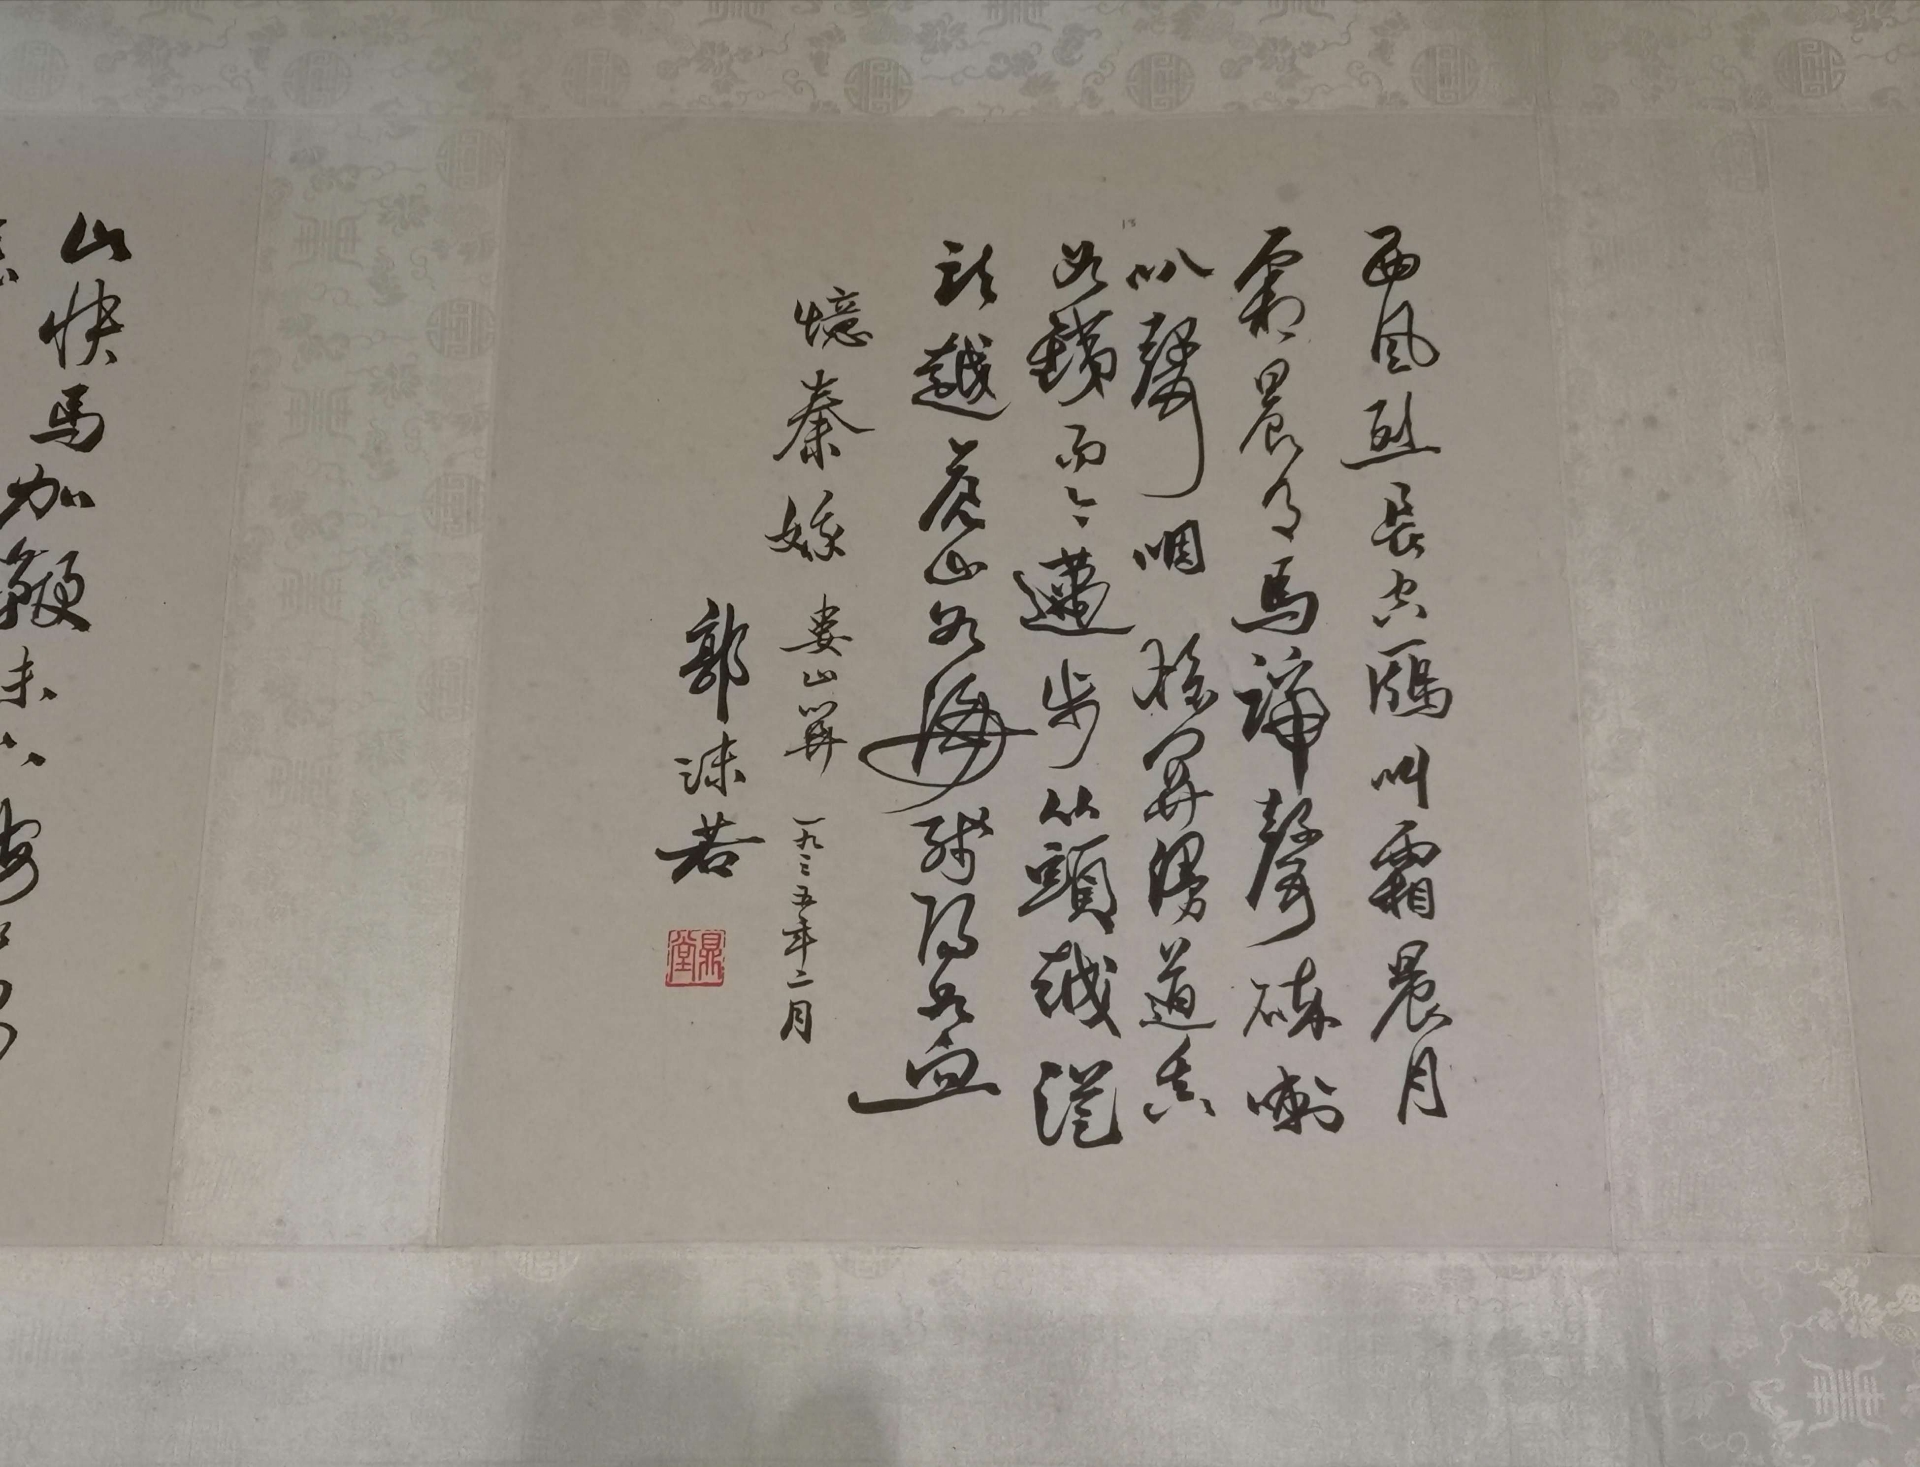 西風烈長空鴈叫霜晨月
霜晨月馬蹄聲碎喇
叭聲咽雄關漫道真
如鐵而今邁步从頭越從
頭越蒼山如海殘陽如血
憶秦娥 婁山關 一九三五年二月
郭沫若
鼎堂
山快馬加鞭未下鞍